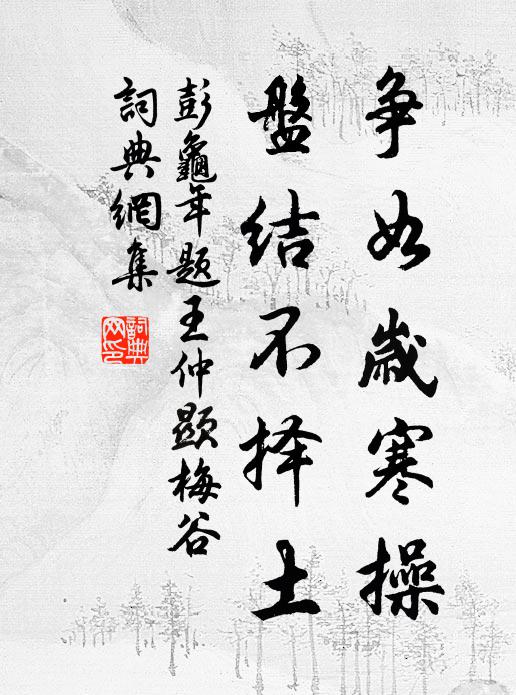 争如歲寒操
盤結不择土
彭龜年题王仲顯梅谷
詞典網集
詞典
网印